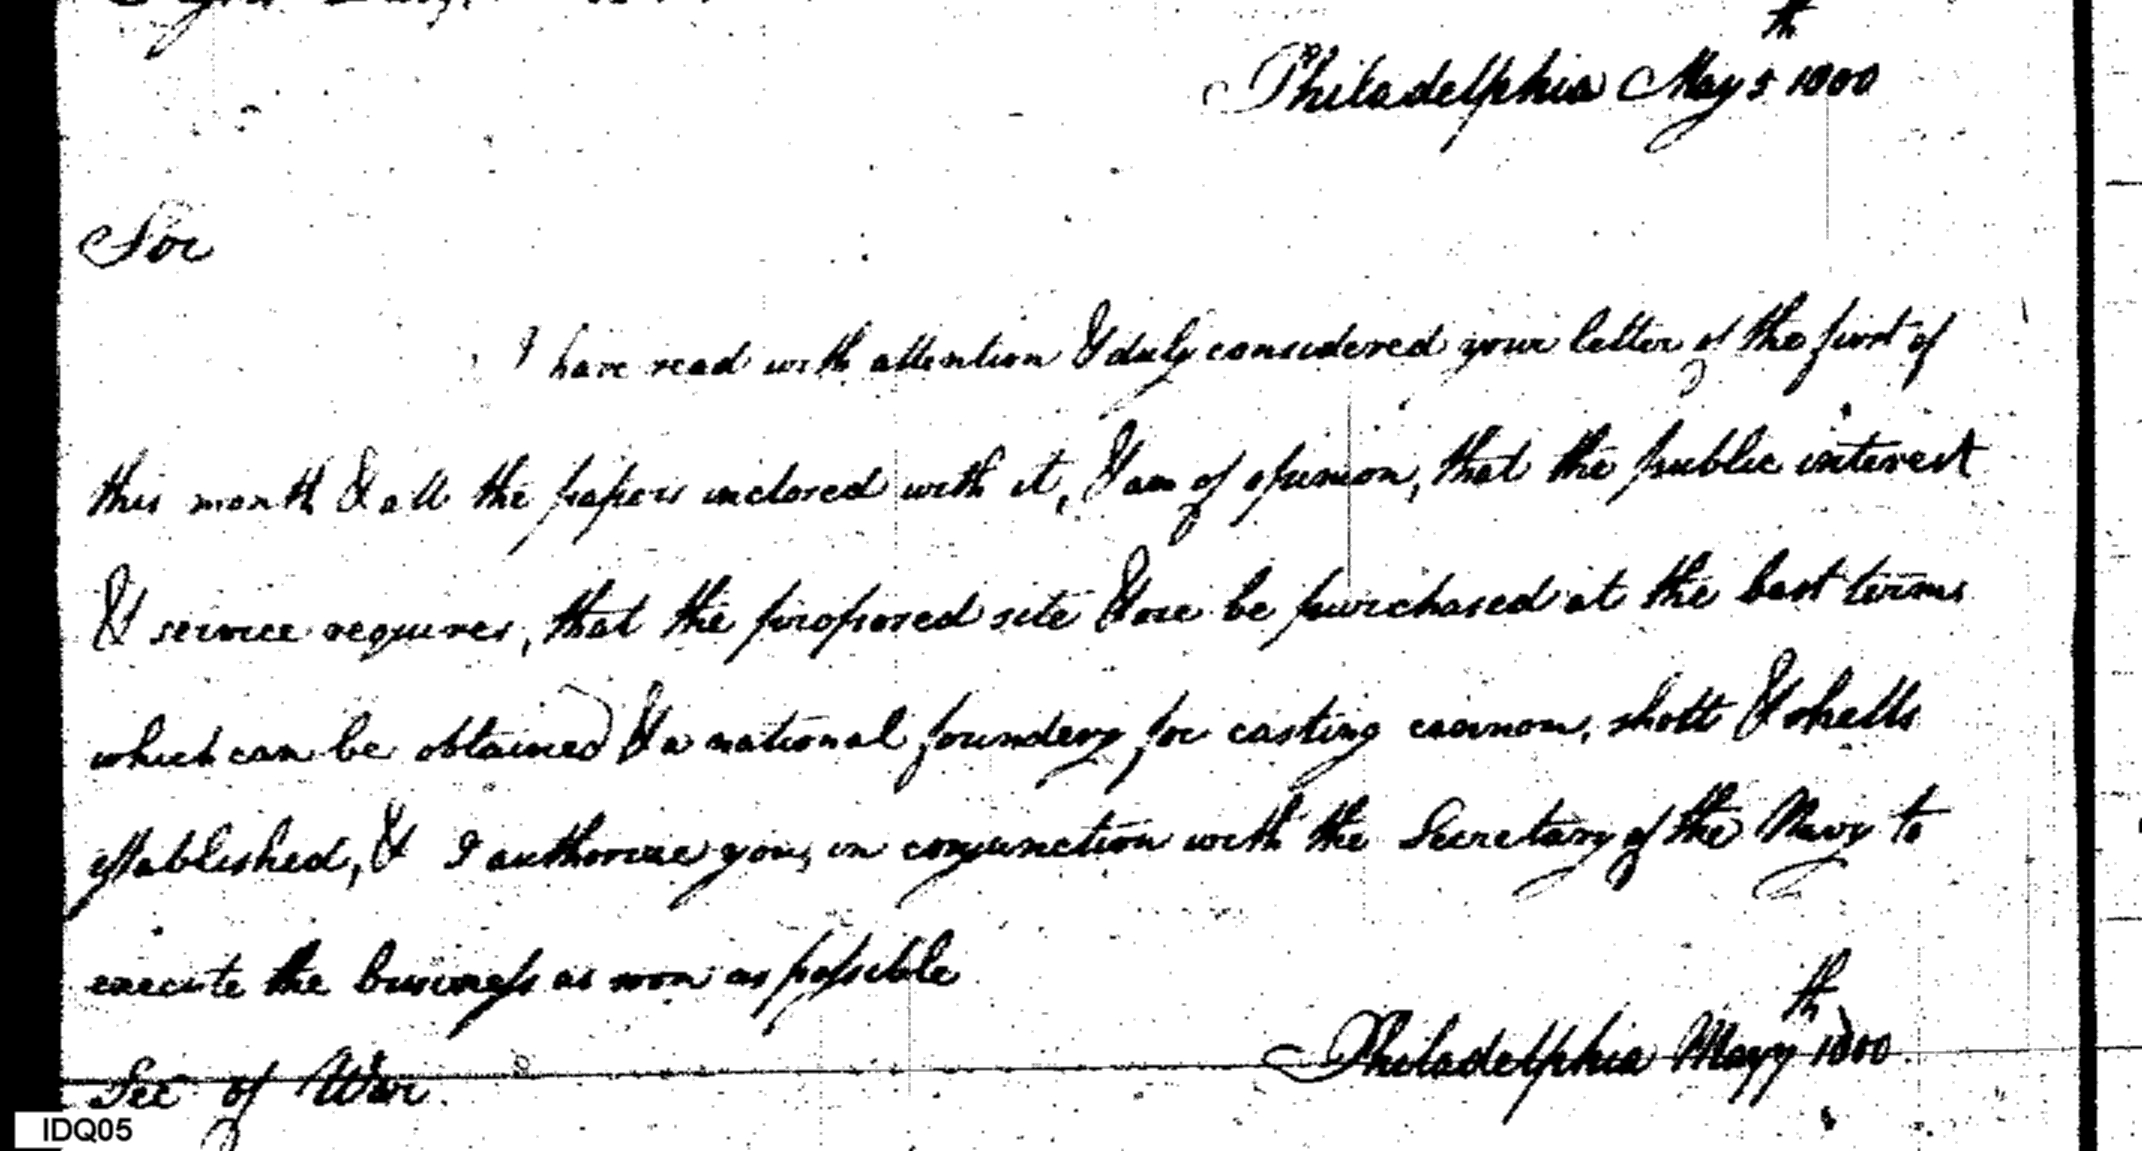 Philadelphia May 5th 1800
Sir
I have read with attention & duly considered your letter of the first of
this month & all the papers inclosed with it, & am of opinion, that the public interest
& service requires, that the proposed site & ore be purchased at the best terms
which can be obtained & a national foundery for casting cannon, shott & shells
established, & I authorize you, in conjunction with the Secretary of the Navy to
execute the business as soon as possible
Philadelphia May 7th 1800
Sec of War.
IDQ05